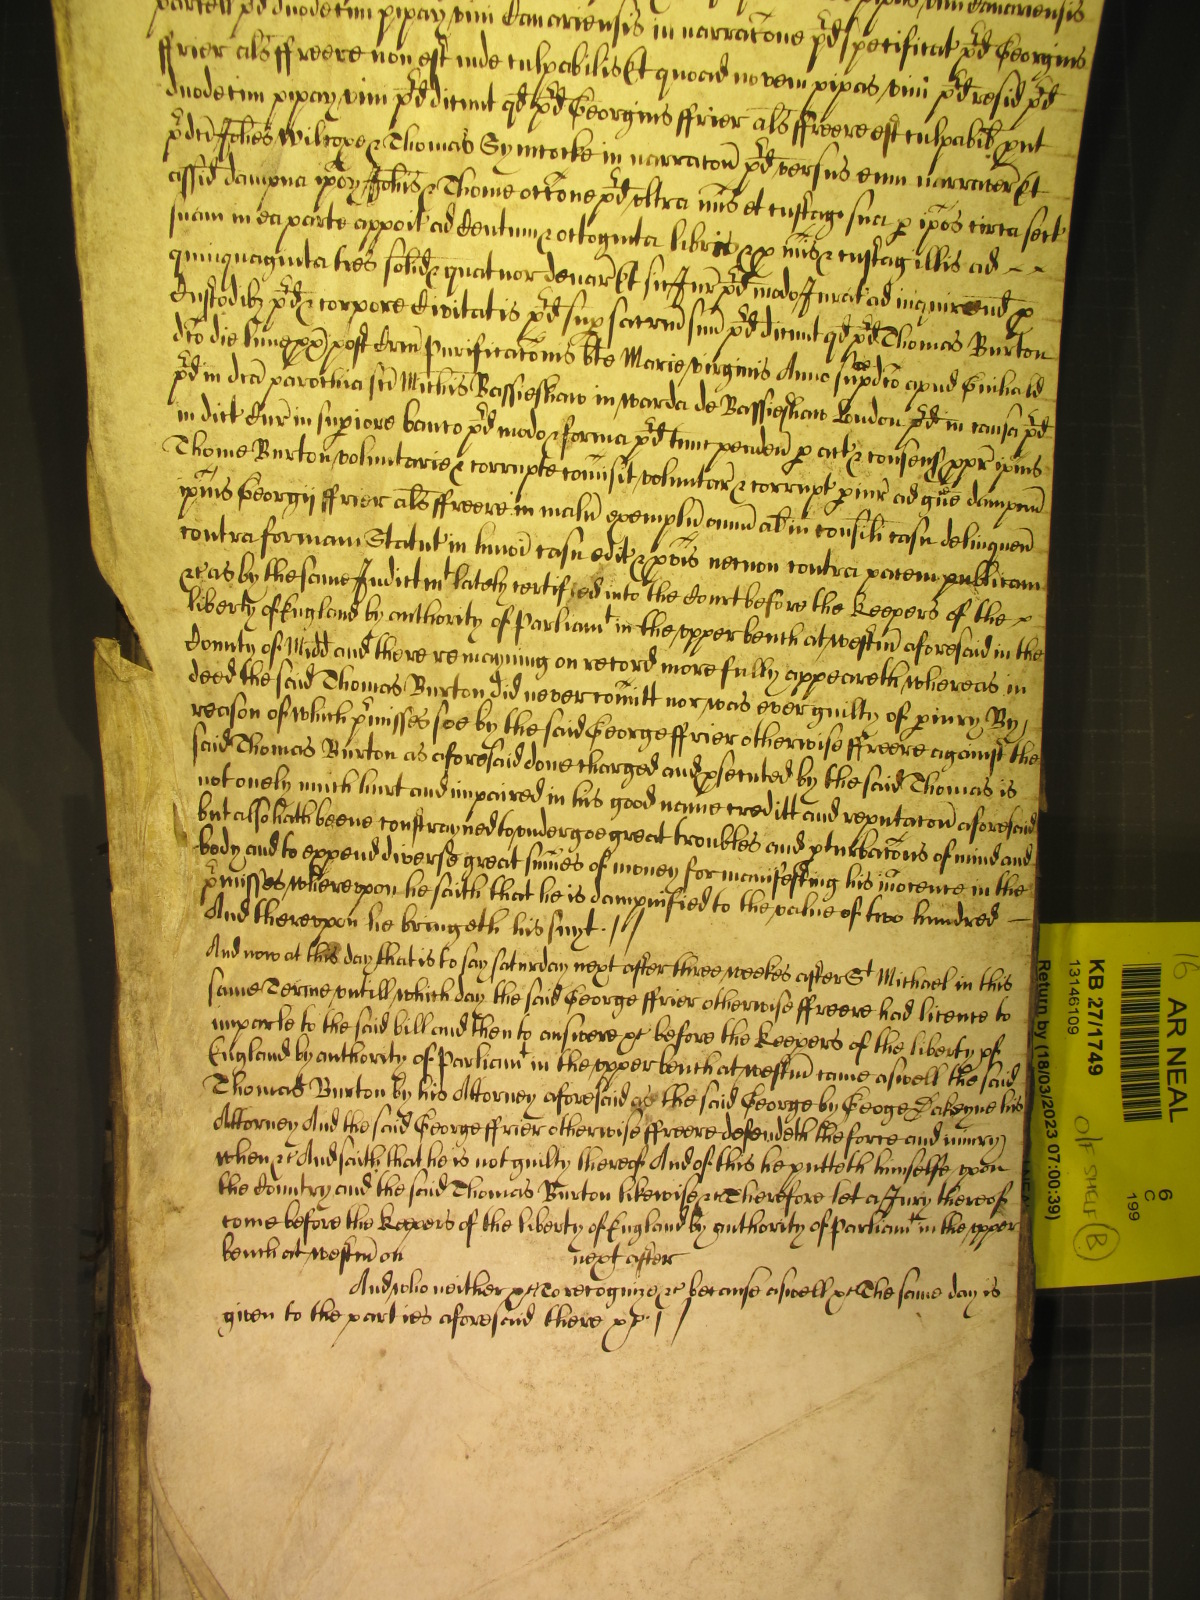 parcell p̄d duodecim pipaꝝ vini Canariensis in narrac̄one p̄d specificat p̄d Georgius
ffrier als̄ ffreere non est inde culpabilis Et quoad novem pipas vini p̄d resid p̄d
duodecim pipaꝝ vini p̄d dicunt qd p̄d Georgius ffrier als̄ ffreere est culpabil put
p̄dc̄i Joh̄es Wilcoxe & Thomas Symcocke in narrac̄on p̄d versus eum narraver̄ Et
assid dampna ip̄oꝝ Joh̄is & Thome occōne p̄d ultra mis̄ et custag sua p ip̄os circa sect
suam in ea parte apposit ad Centum & octoginta libris & p mis̄ & custag illis ad
quinquaginta tres solid & quatuor denar̄ Et sic Jur̄ p̄d modo Jurat ad inquirend p
Custodibȝ p̄d & corpore Civitatis p̄d sup sacrm̄ suū p̄d dicunt qd p̄d Thomas Burton
dc̄o die lune px̄ post ffm̄ Purificac̄onis bt̄e Marie virginis Anno sup̄dc̄o apud Guihald
p̄d in dc̄a parochia sc̄i Mich̄is Bassieshaw in warda de Bassieshaw London p̄d in causa p̄d
in dict Cur̄ in superiore banco p̄d modo & forma p̄d tunc penden̄ p act & consens ppr̄ ip̄ius
Thome Burton voluntarie & corrupte com̄isit voluntar̄ & corrupt piur̄ ad gr̄ve dampnū
ip̄ius Georgij ffrier als̄ ffreere in malū exemplū omiū al in consili casu delinquen̄
contra formam Statut in hmōi casu edit & p̄vis necnon contra pacem publicam
&c as by the same Indictmt lately certified into the Court before the Keepers of the
liberty of England by authority of Parliamt in the upper bench at westm̄ aforesaid in the
County of Midd and there remayning on record more fully appeareth whereas in
deed the said Thomas Burton did never com̄itt nor was ever guilty of piury By
reason of which p̄misses soe by the said George ffrier otherwise ffreere against the
said Thomas Burton as aforesaid done charged and psecuted by the said Thomas is
not onely much hurt and impaired in his good name creditt and reputac̄on aforesaid
but also hath beene constrayned to undergoe great troubles and pturbac̄ons of mind and
body and to expend diverse great sum̄es of money for manifesting his in̄ocence in the
p̄misses whereupon he saith that he is dampnified to the value of two hundred
And thereupon he bringeth his suyt. //
And now at this day that is to say saturday next after three weekes after St Michael in this
same Terme untill which day the said George ffrier otherwise ffreere had licence to
imparle to the said bill and then to answere &c before the Keepers of the liberty of
England by authority of Parliamt in the upper bench at westm̄ came aswell the said
Thomas Burton by his Attorney aforesaid as the said George by George Dakeyne his
Attorney And the said George ffrier otherwise ffreere defendeth the force and iniury
when &c And saith that he is not guilty thereof And of this he putteth himselfe upon
the Country and the said Thomas Burton likewise &c Therefore let a Jury thereof
come before the Keepers of the liberty of England by authority of Parliamt in the upper
bench at westm̄ on next after
And who neither &c To recognize &c because aswell &c The same day is
given to the parties aforesaid there &c //
16 AR NEAL
6
C
199
KB 27/1749
13146109
Return by (18/03/2023 07:00:39)
O/F SHELF B